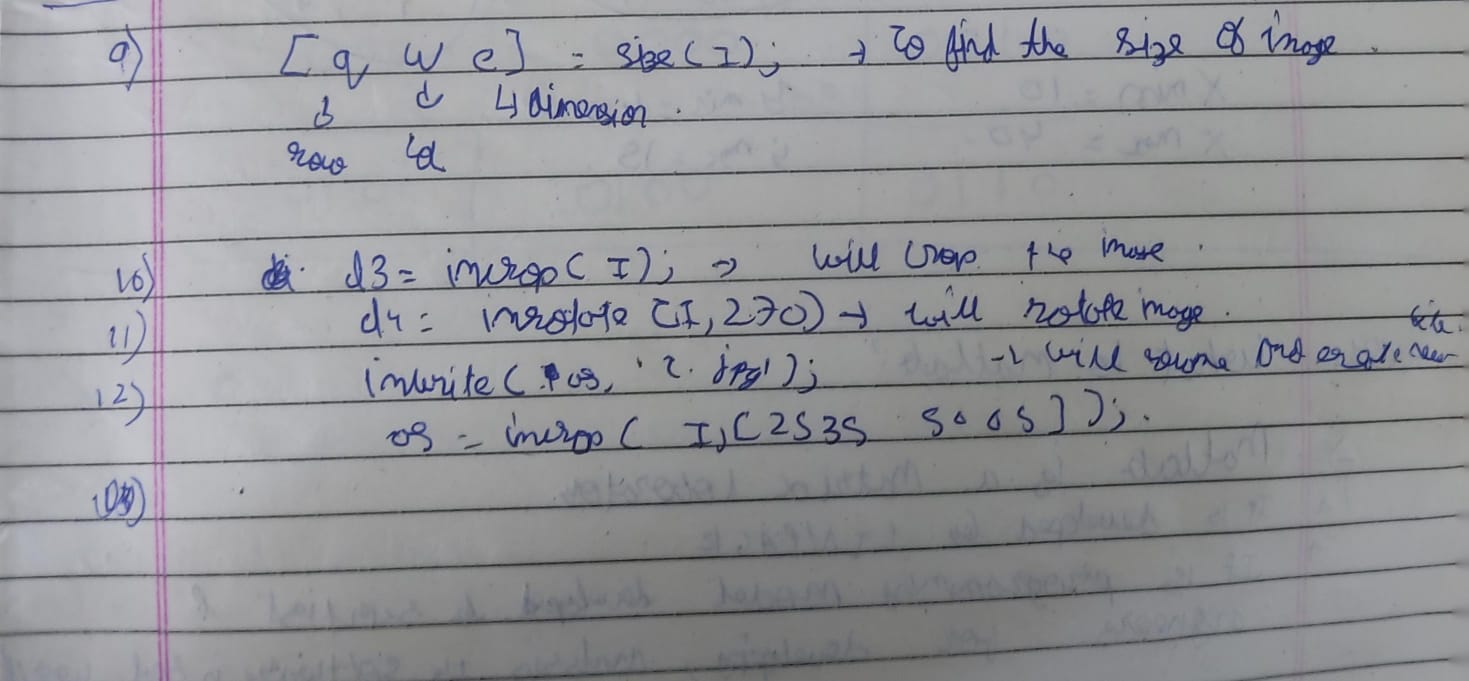 9) [ q w e ] = size ( I ) ; → To find the size of image .
↓ ↓ ↳ dimension .
row col
10) d3 = imcrop ( I ) ; → will crop the image .
11) d4 = imrotate ( I , 270 ) → will rotate image .
file .
12) imwrite ( os , ' 2 . jpg ' ) ; → will and create new
os = imcrop ( I , [ 2535 5005 ] ) ; .